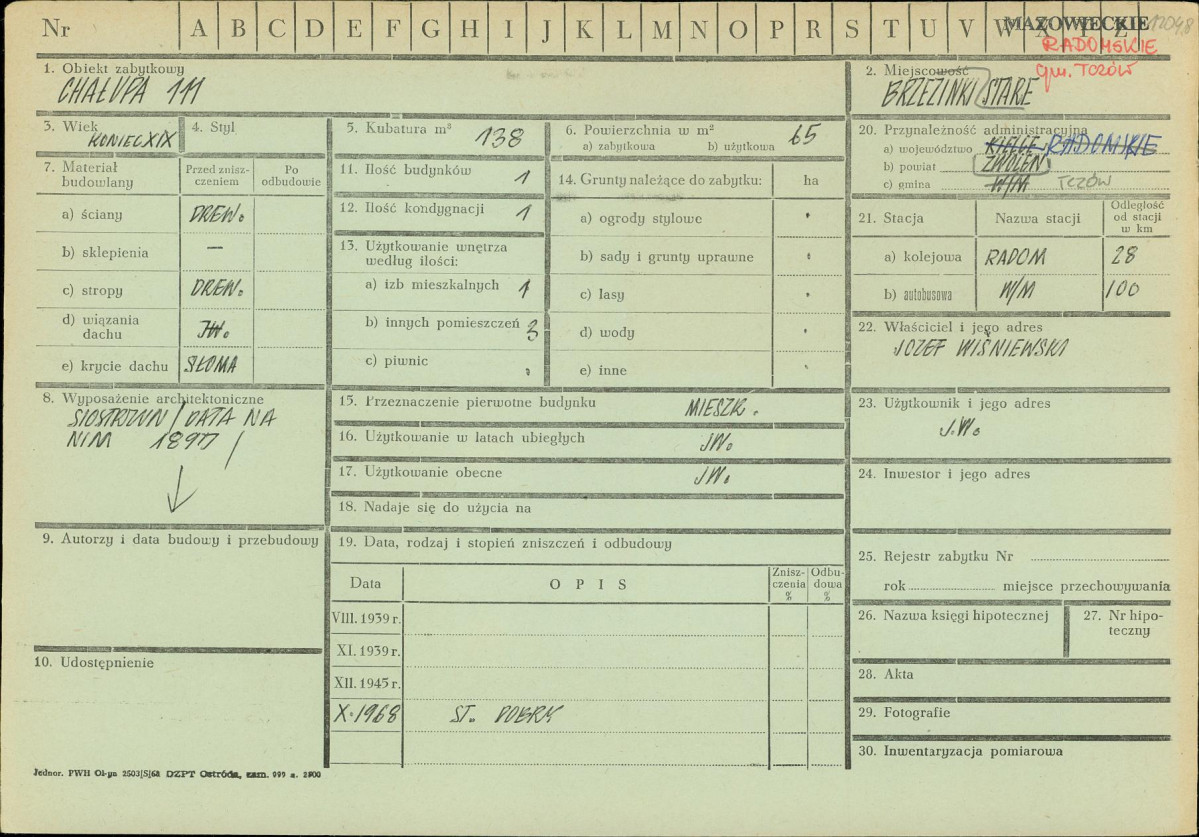 Nr A B C D E F G H I J K L M N O P R S T U V W X Y Z
MAZOWIECKIE
RADOMSKIE
gm. TCZÓW
1. Obiekt zabytkowy
CHAŁUPA 111
2. Miejscowość
BRZEZINKI STARE
3. Wiek
KONIEC XIX
4. Styl
5. Kubatura m³ 138
6. Powierzchnia w m² 65
a) zabytkowa b) użytkowa
7. Materiał budowlany
Przed zniszczeniem
Po odbudowie
a) ściany DREW.
b) sklepienia —
c) stropy DREW.
d) wiązania dachu JW.
e) krycie dachu SŁOMA
8. Wyposażenie architektoniczne
SIOSTRZUN / DATA NA
NIM 1897 /
9. Autorzy i data budowy i przebudowy
10. Udostępnienie
11. Ilość budynków 1
12. Ilość kondygnacji 1
13. Użytkowanie wnętrza
według ilości:
a) izb mieszkalnych 1
b) innych pomieszczeń 3
c) piwnic
14. Grunty należące do zabytku: ha
a) ogrody stylowe
b) sady i grunty uprawne
c) lasy
d) wody
e) inne
15. Przeznaczenie pierwotne budynku MIESZK.
16. Użytkowanie w latach ubiegłych JW.
17. Użytkowanie obecne JW.
18. Nadaje się do użycia na
19. Data, rodzaj i stopień zniszczeń i odbudowy
Data OPIS Zniszczenia % Odbudowa %
VIII. 1939 r.
XI. 1939 r.
XII. 1945 r.
X. 1968 ST. DOBRY
20. Przynależność administracyjna
a) województwo KIELCE RADOMSKIE
b) powiat ZWOLEŃ
c) gmina W/M TCZÓW
21. Stacja Nazwa stacji Odległość od stacji w km
a) kolejowa RADOM 28
b) autobusowa W/M 100
22. Właściciel i jego adres
JÓZEF WIŚNIEWSKI
23. Użytkownik i jego adres
J.W.
24. Inwestor i jego adres
25. Rejestr zabytku Nr
rok miejsce przechowywania
26. Nazwa księgi hipotecznej
27. Nr hipoteczny
28. Akta
29. Fotografie
30. Inwentaryzacja pomiarowa
Jednor. PWH Ol-yn 2503/S/68 DZPT Ostróda, zam. 999 a. 2900